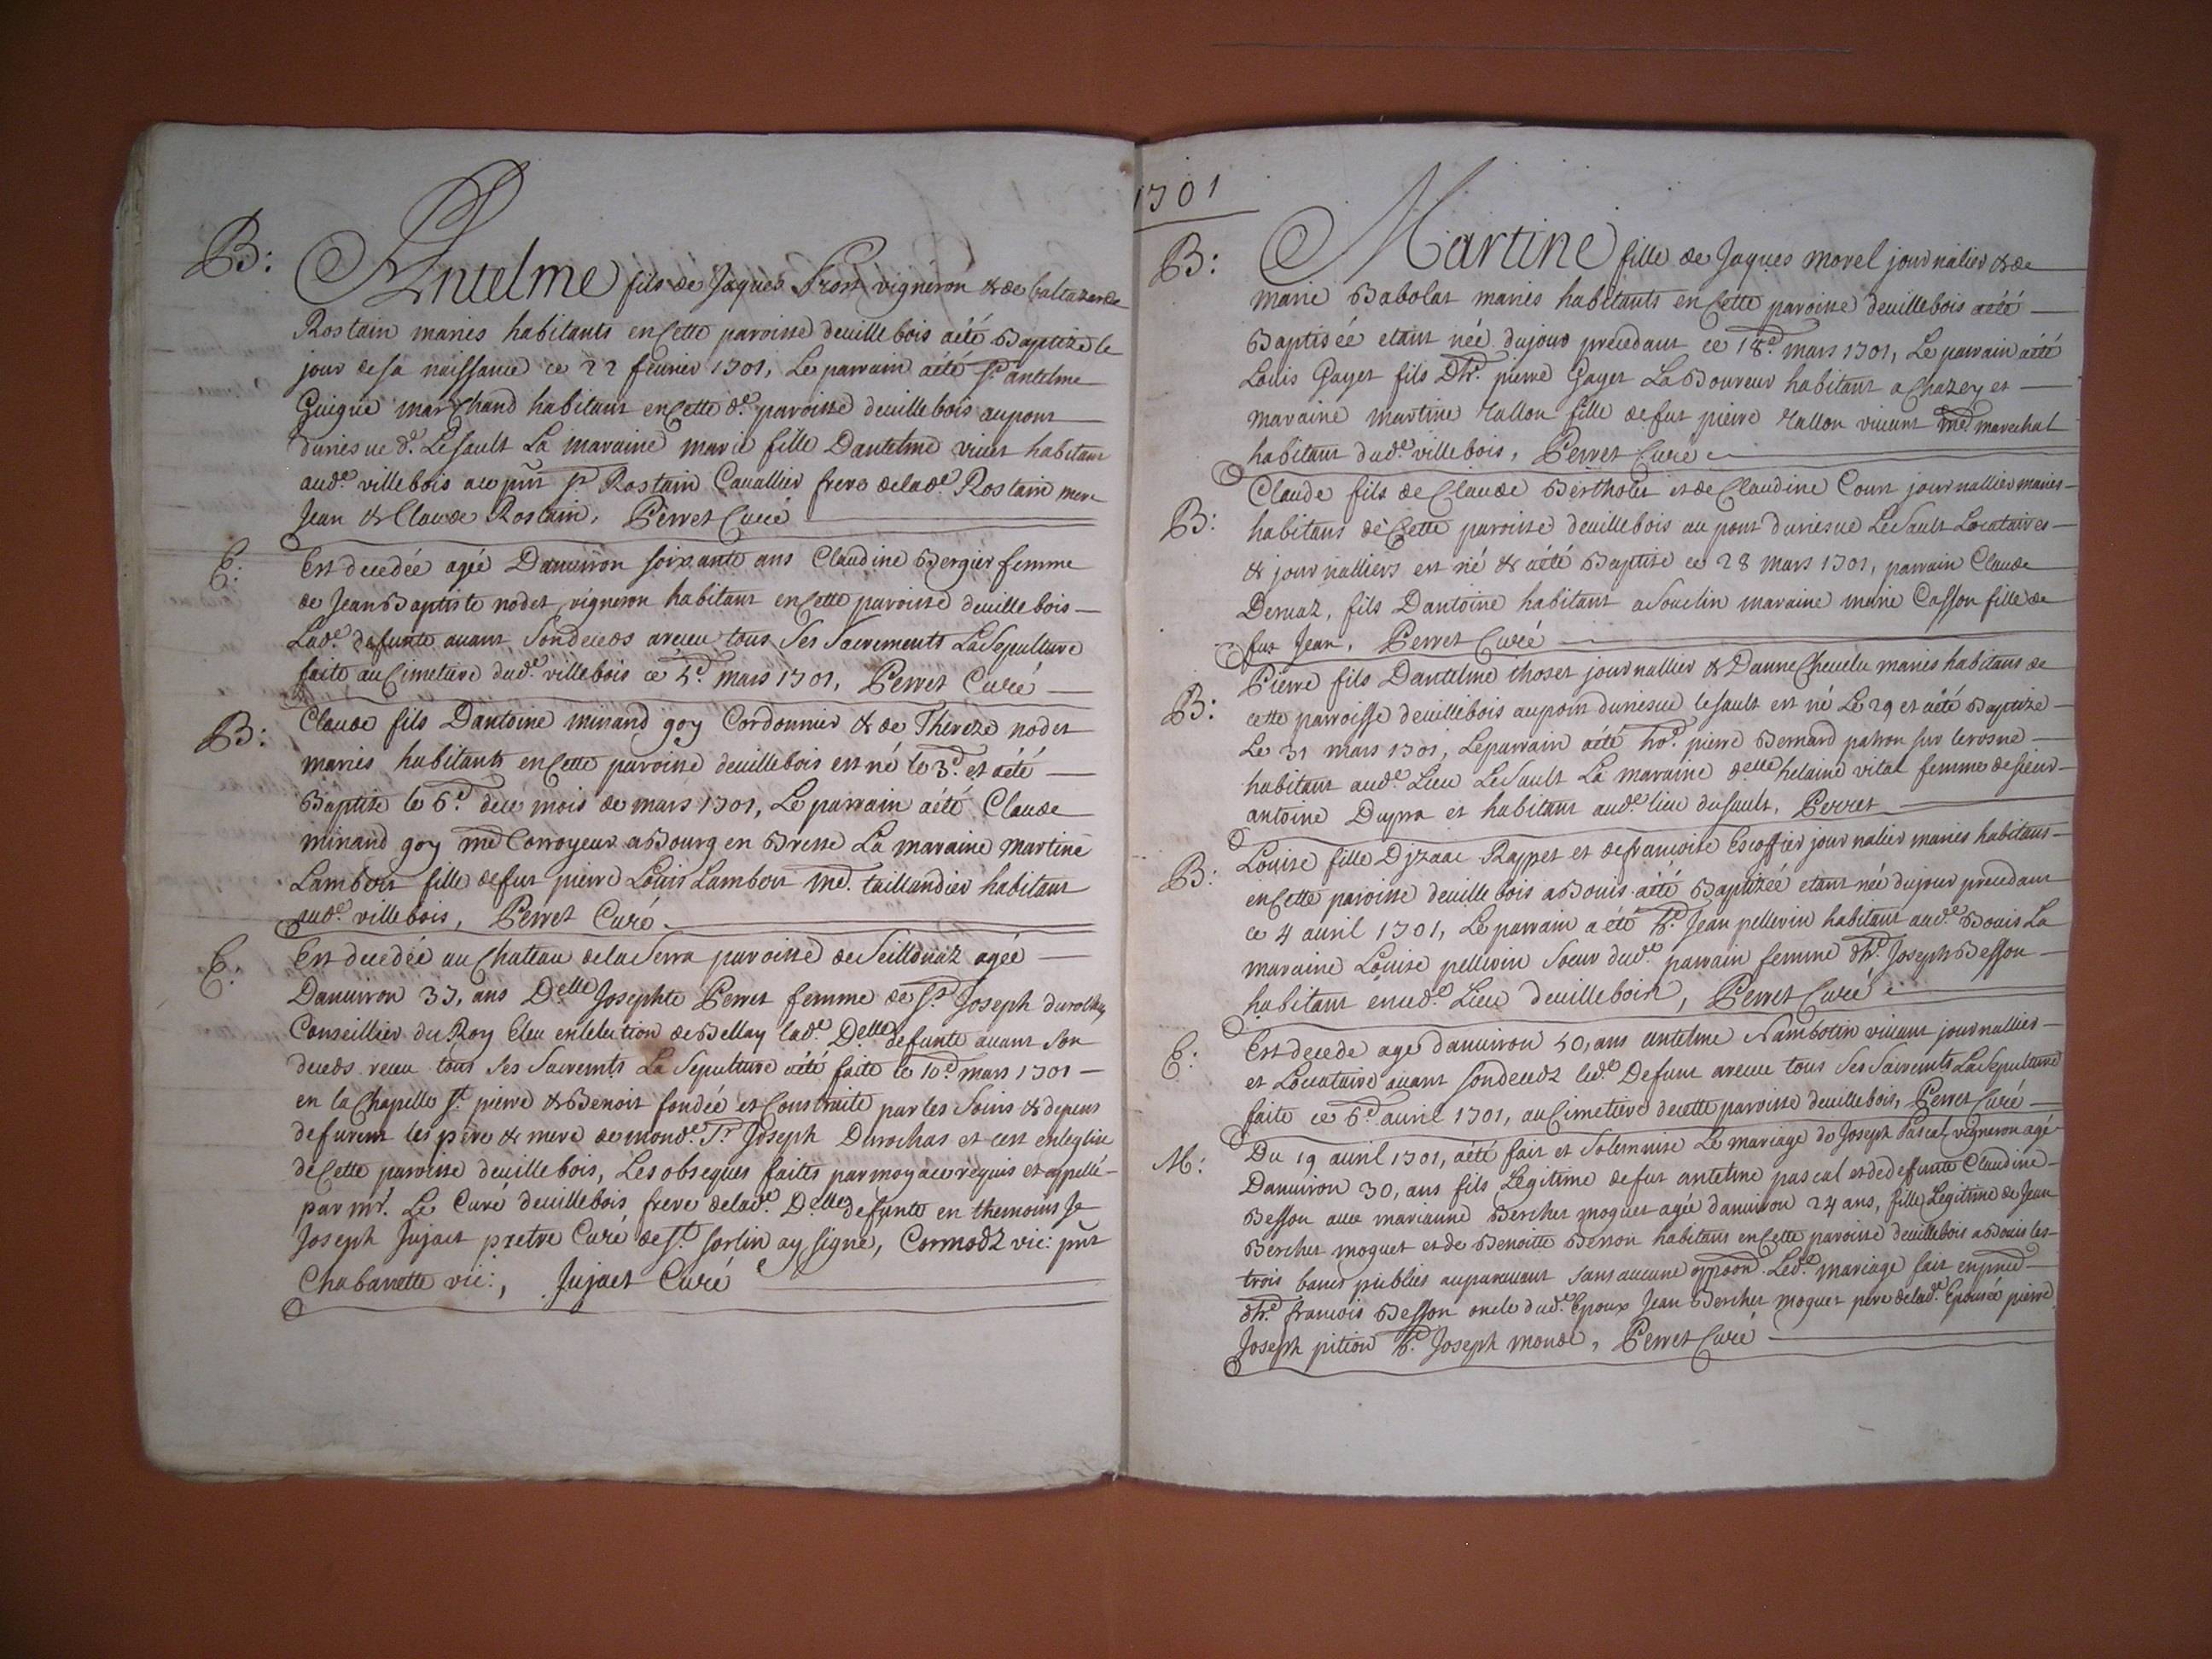 B: Antelme fils de Jaques Prost vigneron & de Baltazarde
Rostain mariés habitants en Cette paroisse deuillebois aété Baptizé le
jour de sa naissance ce 22 feurier 1701, Le parrain aété Sr. antelme
Guigue marchand habitant en Cette de. paroisse deuillebois aupont
duriesue d. Lesault La maraine marie fille Dantelme viuet habitant
aude. villebois au pnt Sr Rostain Cauallier frere delade. Rostain mere
Jean & Claude Rostain, Perret Curé
E: Est decedée agée Danuiron soixante ans Claudine Bergier femme
de Jean Baptiste nodet vigneron habitant en Cette paroisse deuillebois
Lade. defunte auant Son deceds areceu tous Ses Sacrements La Sepulture
faite au Cimetiere dude. villebois ce 5e. mars 1701, Perret Curé
B: Claude fils Dantoine minand goy Cordonnier & de Thereze nodet
mariés habitants en Cette paroisse deuillebois est né le 3e. et aété
Baptisé le 6e. dece mois de mars 1701, Le parrain aété Claude
minand goy md Corroyeur a Bourg en Bresse La maraine Martine
Lambert fille defut pierre Louis Lambert md. taillandier habitant
aude. villebois, Perret Curé
E: Est decedée au Chateau de la Serra paroisse de Seillonaz agée
Danuiron 37, ans Delle Josephte Perret femme de Sr. Joseph durochas
Conseillier du Roy Eleu en lelection de Bellay lade. Delle defunte auant Son
deceds receu tous Ses Sacremts La Sepulture aété faite le 10e mars 1701
en la Chapelle St. pierre & Benoit fondée et Construite par les Soins & depens
defurent les pere & mere de monde. Sr Joseph Durochas et cest en leglise
de Cette paroisse deuillebois, Les obseques faites par moy ace requis et appellé
par mr. Le Curé deuillebois frere delade. Delle defunte en themoins Je
Joseph Jujaet pretre Curé de St. Sorlin ay signé, Cormodz vic: pnt
Chabanette vic:, Jujaet Curé
1701
B: Martine fille de Jaques morel journalier & de
marie Babolat mariés habitants en Cette paroisse deuillebois aété
Baptisée etant née dujour precedant ce 18e. mars 1701, Le parrain aété
Louis Gayet fils Dhe. pierre Gayet LaBoureur habitant a Chazey et
maraine martine rallon fille defut pierre rallon viuant md. marechal
habitant dude. villebois, Perret Curé
B: Claude fils de Claude Bertholet et de Claudine Court journallier mariés
habitans de Cette paroisse deuillebois au pont duriesue LeSault Locataires
& journalliers est né & aété Baptisé ce 28 mars 1701, parrain Claude
Deruaz, fils Dantoine habitant aSouclin maraine marie Casson fille de
fut Jean, Perret Curé
B: Pierre fils Dantelme thoset journallier & Danne Cheuelu mariés habitans de
cette parroisse deuillebois aupont duriesue lesault est né Le 29 et aété Baptizé
Le 31 mars 1701, Leparrain aété he. pierre Bernard patron sur lerosne
habitant aude. Lieu LeSault La maraine delle helaine vital femme desieur
antoine Dupra et habitant aude. lieu dusault, Perret
B: Louise fille Djzaac Rappet et defrancoise Escoffier journalier mariés habitans
en Cette paroisse deuillebois aBouis aété Baptizée etant née dujour precedant
ce 4 auril 1701, Le parrain a été he. Jean pellerin habitant aude. Bouis La
maraine Louise pellerin Soeur dude. parrain femme dhe. Joseph Besson
habitant enude. Lieu deuillebois, Perret Curé
E: Est decede agé danuiron 50, ans antelme Nambotin viuant journallier
et Locataire auant Sondecedz lede. Defunt areceu tous Ses Sacremts La Sepulture
faite ce 6e auril 1701, au Cimetiere decette paroisse deuillebois, Perret Curé
M: Du 19 auril 1701, aété fait et Solemnise Le mariage de Joseph Pascal vigneron agé
Danuiron 30, ans fils Legitime defut antelme pascal et dedefunte Claudine
Besson auec marianne Berchet moguet agée danuiron 24 ans, fille Legitime de Jean
Berchet moguet et de Benoitte Besson habitans en Cette paroisse deuillebois aBouis les
trois bancs publies auparauant sans aucune opposon. Lede. mariage fait en pnce
dhe. francois Besson oncle dude. Epoux Jean Berchet moguet pere delade. Epousée pierre
Joseph pition he. Joseph monde, Perret Curé